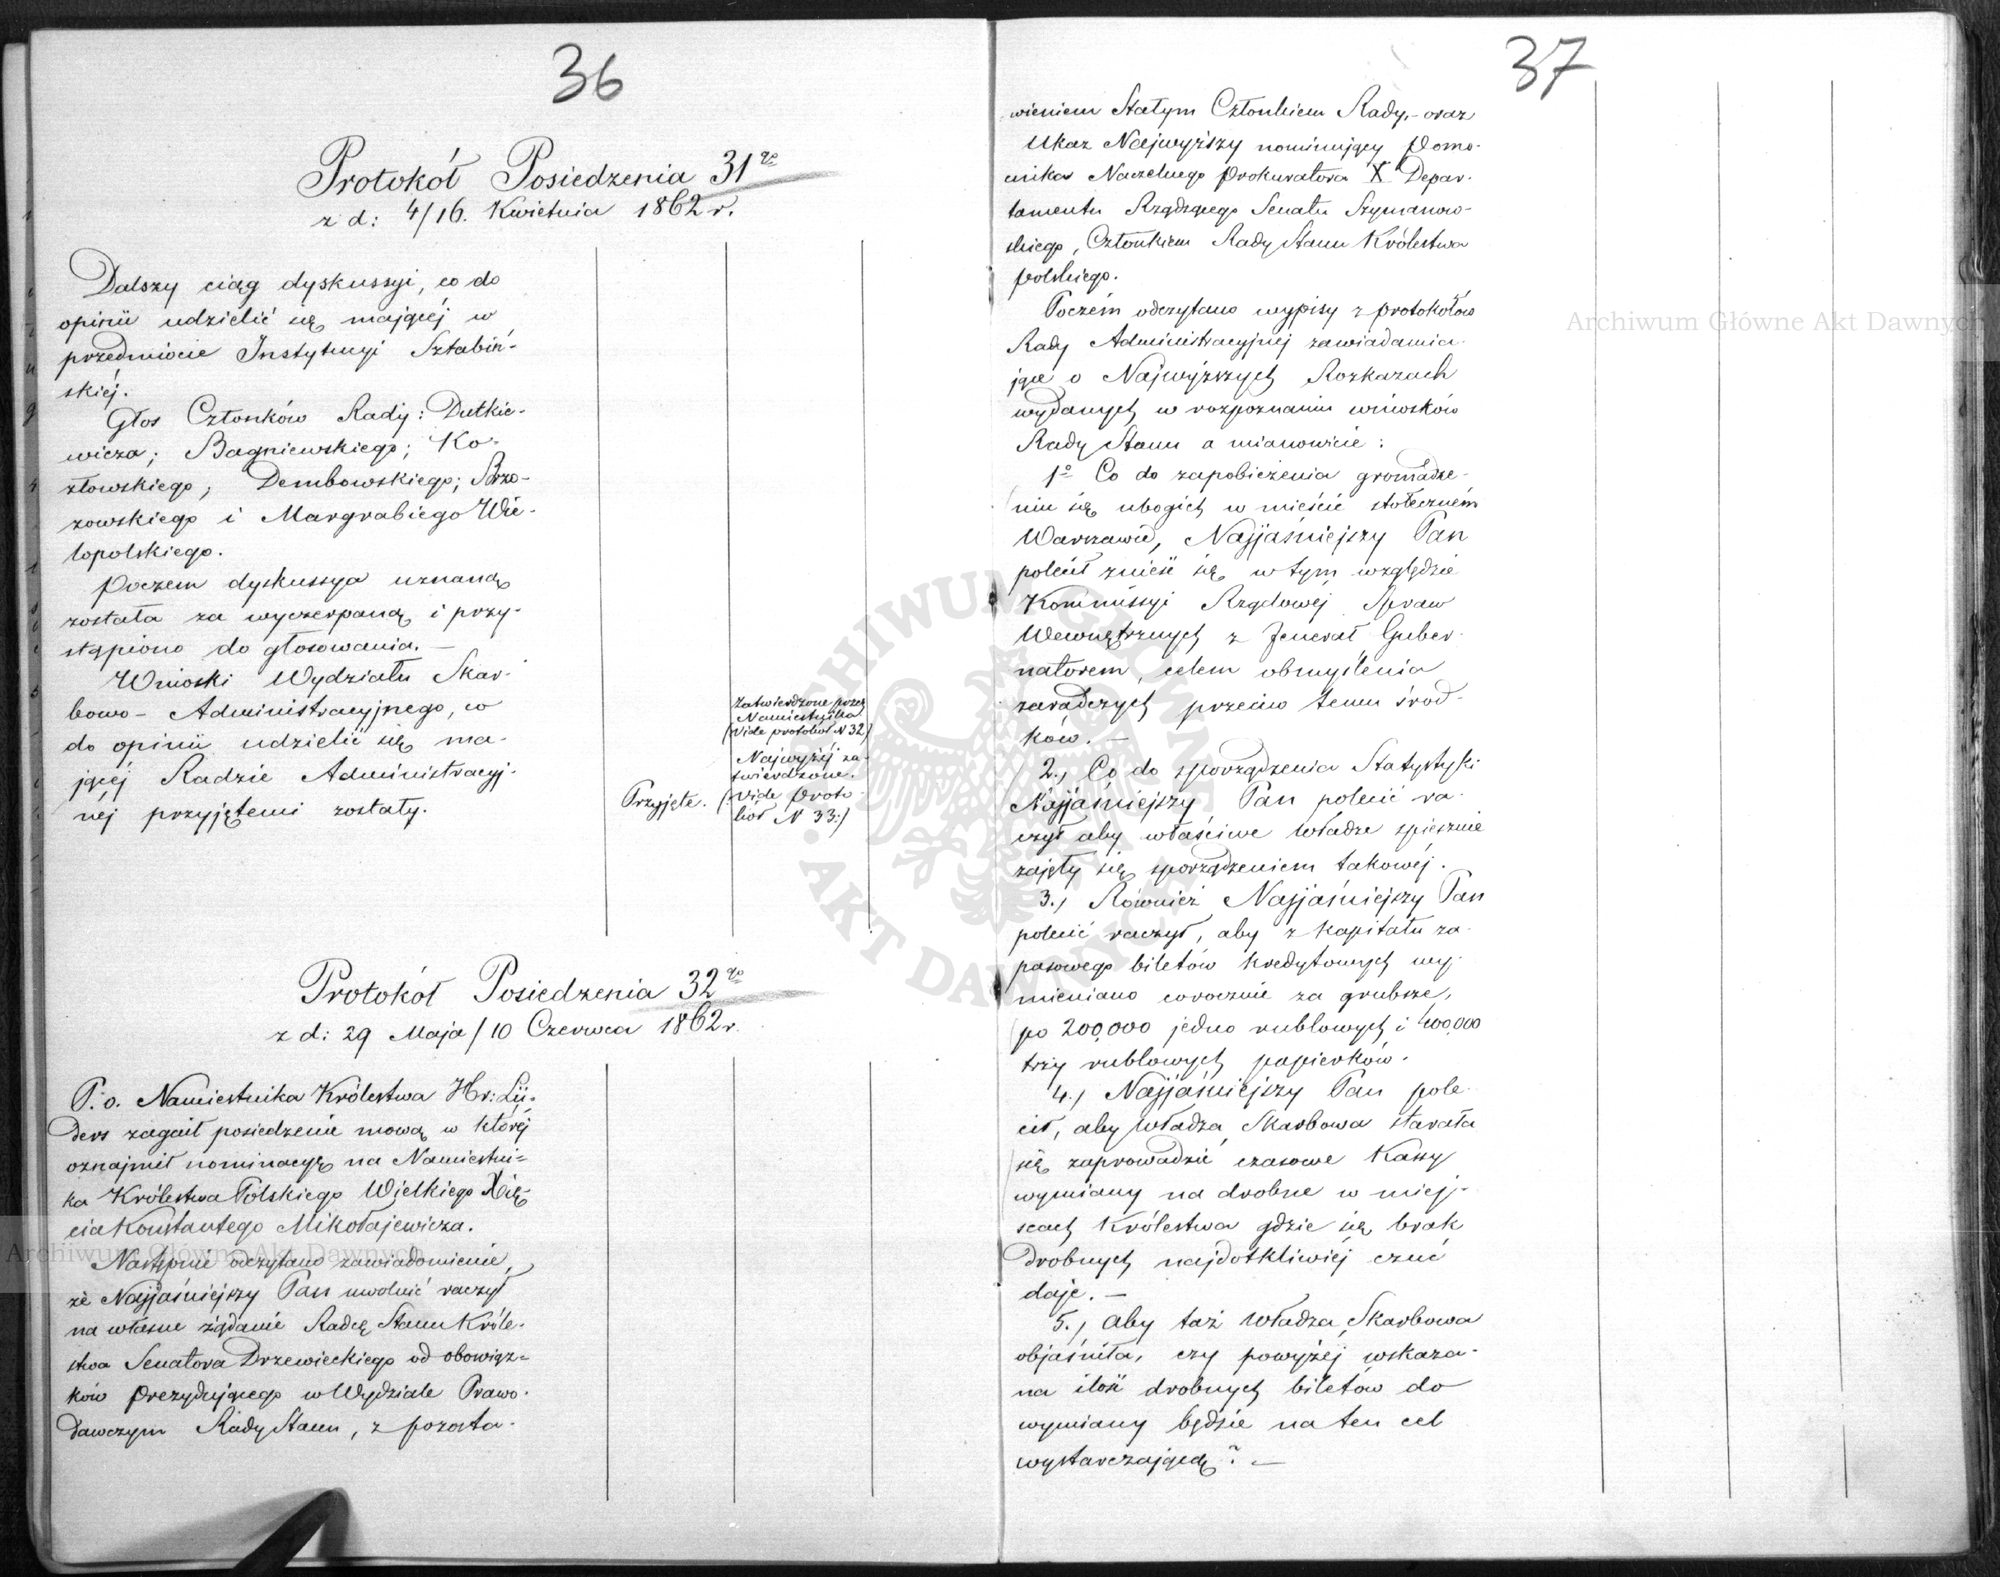 36
Protokół Posiedzenia 31go
z d: 4/16. Kwietnia 1862 r.
Dalszy ciąg dyskussyi, co do
opinii udzielić się mającej w
przedmiocie Instytucyi Sztabiń-
skiej.
Głos Członków Rady: Dutkie-
wicza; Bagniewskiego; Ko-
złowskiego; Dembowskiego; Brzo-
zowskiego i Margrabiego Wie-
lopolskiego.
Poczem dyskussya uznaną
została za wyczerpaną i przy-
stąpiono do głosowania. —
Wnioski Wydziału Skar-
bowo - Administracyjnego, co
do opinii udzielić się ma-
jącej Radzie Administracyj-
nej przyjętemi zostały.
Przyjęte.
Zatwierdzone przez
Namiestnika
(Vide protokół N 32)
Najwyżej za-
twierdzone.
(Vide Proto-
kół N 33:)
Protokół Posiedzenia 32go
z d: 29 Maja/10 Czerwca 1862 r.
P. o. Namiestnika Królestwa Hr: Lü-
ders zagaił posiedzenie mową w której
oznajmił nominacyę na Namiestni=
ka Królestwa Polskiego Wielkiego Xię-
cia Konstantego Mikołajewicza.
Następnie odczytano zawiadomienie,
że Najjaśniejszy Pan uwolnić raczył
na własne żądanie Radcę Stanu Króle-
stwa Senatora Drzewieckiego od obowiąz=
ków Prezydującego w Wydziale Prawo-
dawczym Rady Stanu, z pozosta-
37
wieniem Stałym Członkiem Rady, - oraz
Ukaz Najwyższy nominujący Pomo-
cnika Naczelnego Prokuratora X Depar-
tamentu Rządzącego Senatu Szymanow-
skiego, Członkiem Rady Stanu Królestwa
Polskiego.
Poczém odczytano wypisy z protokołów
Rady Administracyjnej zawiadamia-
jące o Najwyższych Rozkazach
wydanych w rozpoznaniu wniosków
Rady Stanu a mianowicie:
1o Co do zapobieżenia gromadze-
niu się ubogich w mieście stołeczném
Warszawie, Najjaśniejszy Pan
polecił znieść się w tym względzie
Kommissyi Rządowej Spraw
Wewnętrznych z Jenerał Guber-
natorem, celem obmyślenia
zaradczych przeciw temu środ-
ków. —
2.) Co do sporządzenia Statystyki
Najjaśniejszy Pan polecić ra-
czył aby właściwe Władze spiesznie
zajęły się sporządzeniem takowej.
3.) Również Najjaśniejszy Pan
polecić raczył, aby z kapitału za-
pasowego biletów kredytowych wy-
mieniano corocznie za grubsze,
po 200,000 jedno rublowych i 100,000
trzy rublowych papierków.
4.) Najjaśniejszy Pan pole-
cił, aby Władza Skarbowa starała
się zaprowadzić czasowe Kassy
wymiany na drobne w miej-
scach Królestwa gdzie się brak
drobnych najdotkliwiej czuć
daje. —
5.) Aby taż Władza Skarbowa
objaśniła, czy powyżej wskaza-
na ilość drobnych biletów do
wymiany będzie na ten cel
wystarczającą? —
Archiwum Główne Akt Dawnych
Archiwum Główne Akt Dawnych
ARCHIWUM GŁÓWNE
AKT DAWNYCH